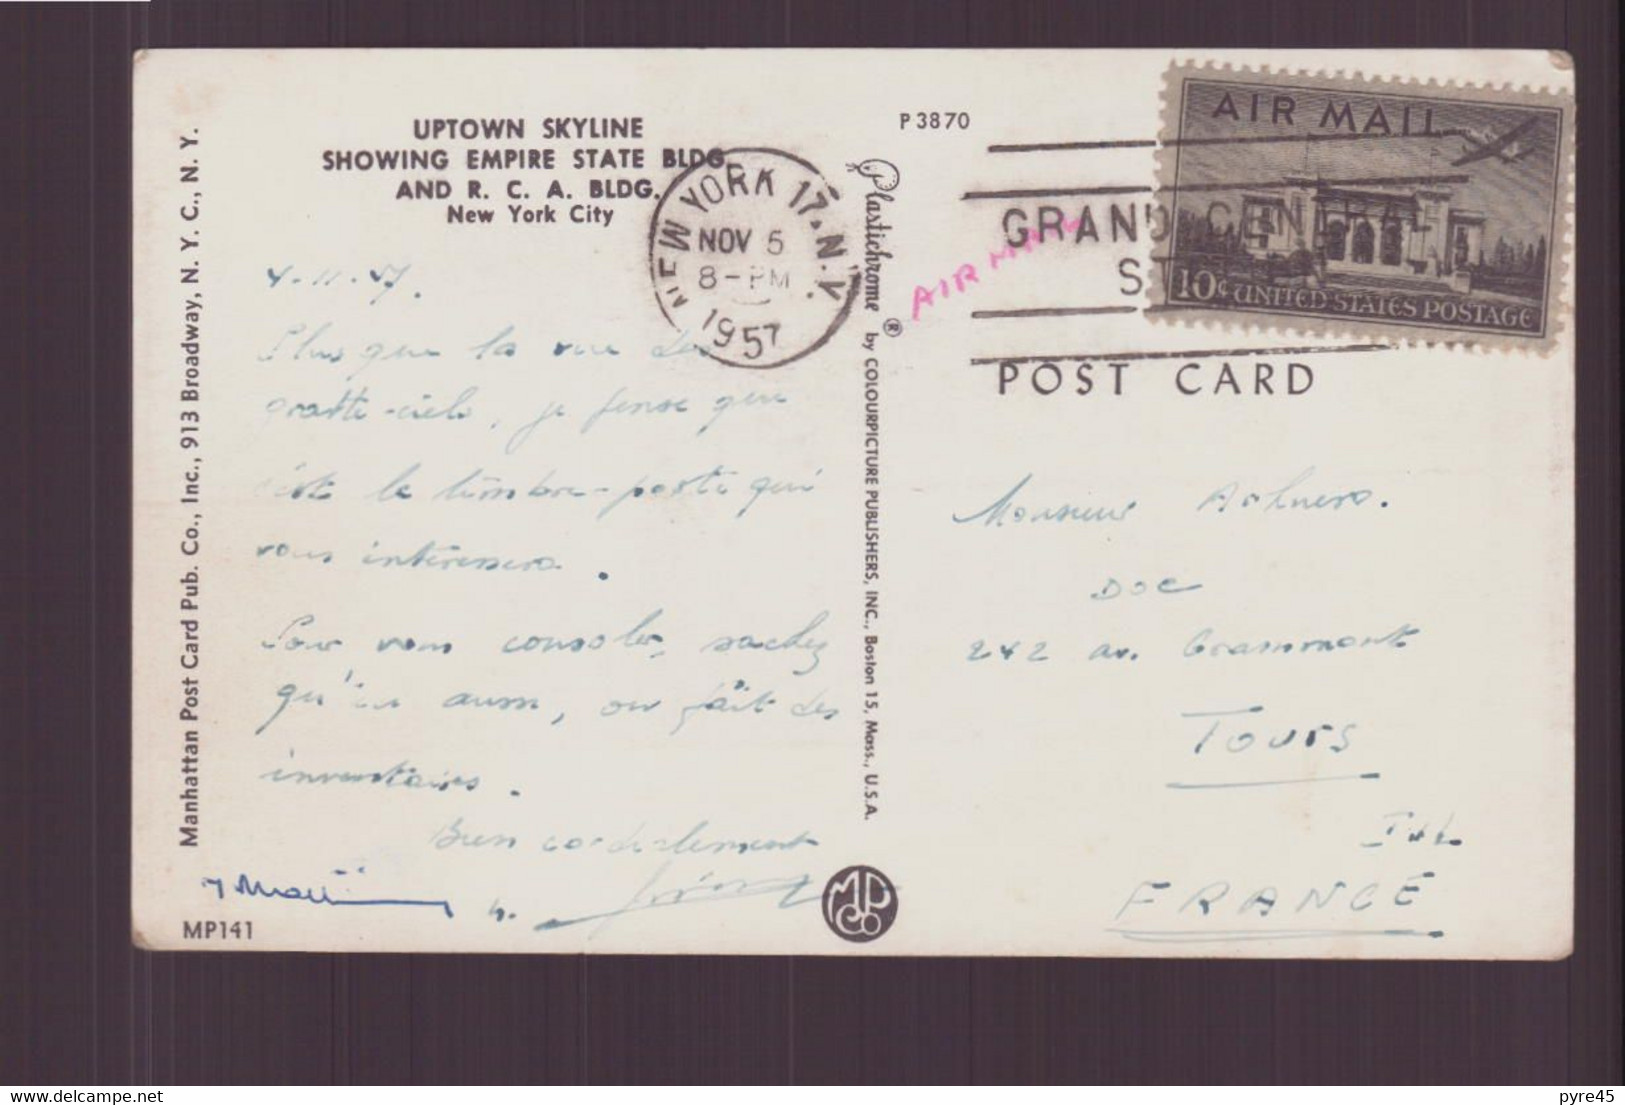 UPTOWN SKYLINE
SHOWING EMPIRE STATE BLDG.
AND R. C. A. BLDG.
New York City
P 3870
NEW YORK 17, N.Y.
NOV 5
8 - PM
1957
GRAND CENTRAL
AIR MAIL
10¢ UNITED STATES POSTAGE
AIR MAIL
POST CARD
4-11-57.
Plus que la vue des
gratte-ciels, je pense que
c'est le timbre-poste qui
vous intéressera.
Pour vous consoler, sachez
qu'ici aussi, on fait des
inventaires.
Bien cordialement
Monsieur
DOC
242 av. Grammont
TOURS
I & L.
FRANCE
Manhattan Post Card Pub. Co., Inc., 913 Broadway, N. Y. C., N. Y.
Plastichrome ® by COLOURPICTURE PUBLISHERS, INC., Boston 15, Mass., U.S.A.
MP
Co
MP141
pyre45